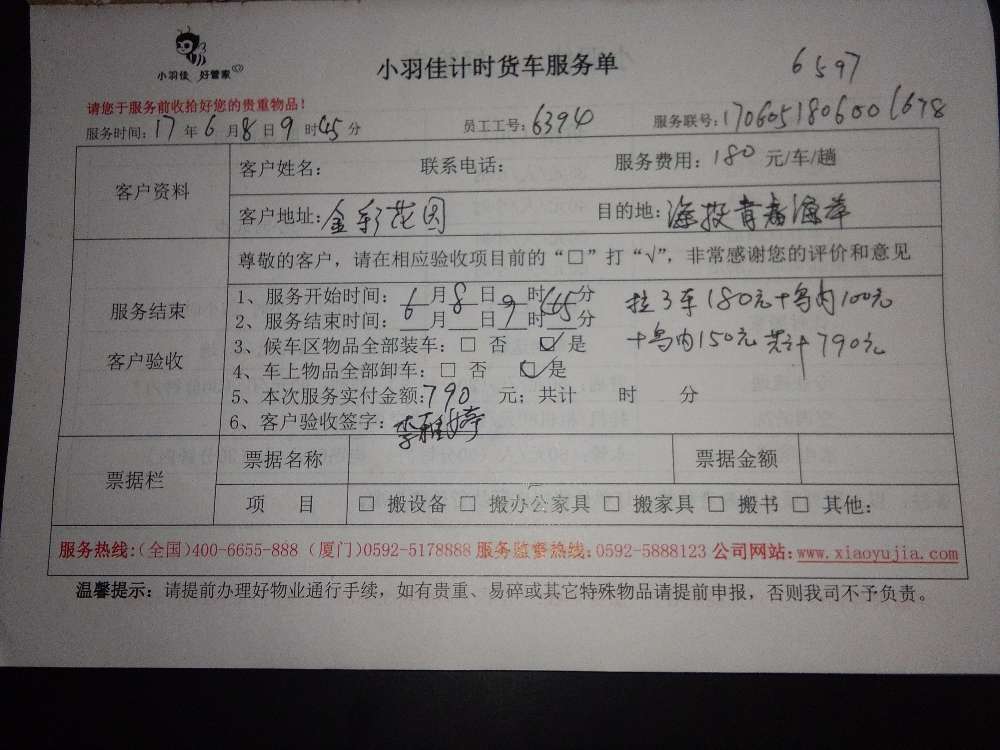 小羽佳 好管家
小羽佳计时货车服务单
6597
请您于服务前收拾好您的贵重物品！
服务时间：17年6月8日9时45分 员工工号：6394 服务联号：1706051806001678
客户资料
客户姓名： 联系电话： 服务费用：180元/车/趟
客户地址：金彩花园 目的地：海投青春海岸
服务结束
客户验收
尊敬的客户，请在相应验收项目前的“□”打“√”，非常感谢您的评价和意见
1、服务开始时间：6月8日9时45分
2、服务结束时间：__月__日9时45分
3、候车区物品全部装车：□ 否 ☑ 是
4、车上物品全部卸车：□ 否 ☑ 是
5、本次服务实付金额：790 元；共计 时 分
6、客户验收签字：李雅婷
拉3车180元+岛内100元
+岛内150元共计790元
票据栏
票据名称 票据金额
项 目 □ 搬设备 □ 搬办公家具 □ 搬家具 □ 搬书 □ 其他：
服务热线：(全国)400-6655-888 (厦门)0592-5178888 服务监督热线：0592-5888123 公司网站：www.xiaoyujia.com
温馨提示：请提前办理好物业通行手续，如有贵重、易碎或其它特殊物品请提前申报，否则我司不予负责。